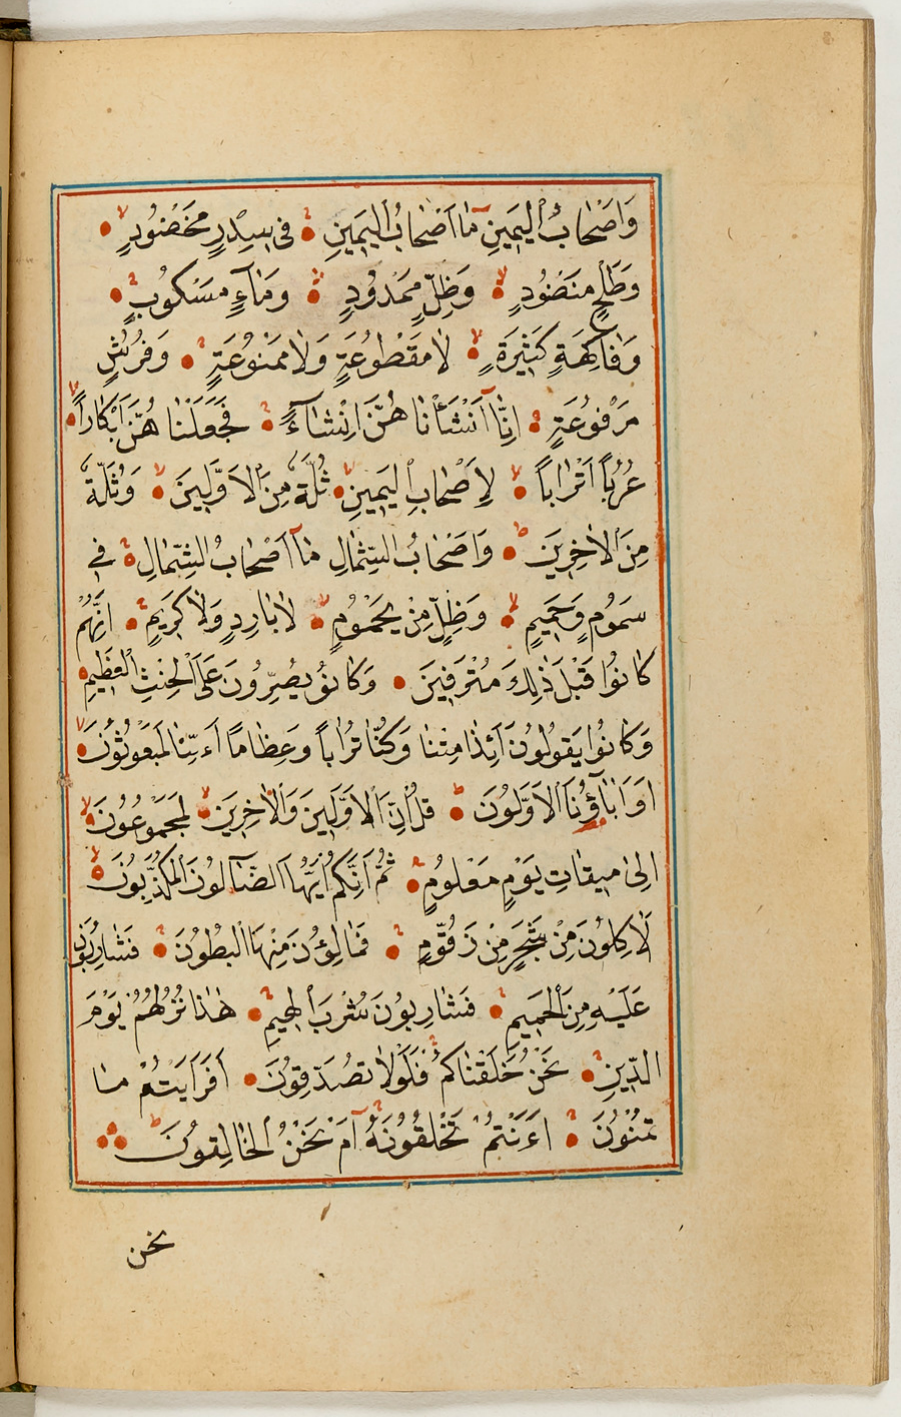 وَاَصْحَابُ الْيَمِينِ مَا اَصْحَابُ الْيَمِينِ فِى سِدْرٍ مَخْضُودٍ
وَطَلْحٍ مَنْضُودٍ وَظِلٍّ مَمْدُودٍ وَمَاءٍ مَسْكُوبٍ
وَفَاكِهَةٍ كَثِيرَةٍ لَا مَقْطُوعَةٍ وَلَا مَمْنُوعَةٍ وَفُرُشٍ
مَرْفُوعَةٍ اِنَّا اَنْشَأْنَا هُنَّ اِنْشَاءً فَجَعَلْنَا هُنَّ اَبْكَاراً
عُرُباً اَتْرَاباً لِاَصْحَابِ الْيَمِينِ ثُلَّةٌ مِنَ الْاَوَّلِينَ وَثُلَّةٌ
مِنَ الْاٰخِرِينَ وَاَصْحَابُ الشِّمَالِ مَا اَصْحَابُ الشِّمَالِ فِى
سَمُومٍ وَحَمِيمٍ وَظِلٍّ مِنْ يَحْمُومٍ لَا بَارِدٍ وَلَا كَرِيمٍ اِنَّهُمْ
كَانُوا قَبْلَ ذٰلِكَ مُتْرَفِينَ وَكَانُو يُصِرُّونَ عَلَى الْحِنْثِ الْعَظِيمِ
وَكَانُوا يَقُولُونَ اَئِذَا مِتْنَا وَكُنَّا تُرَاباً وَعِظَاماً اَءِنَّا لَمَبْعُوثُونَ
اَوَ اٰبَاؤُنَا الْاَوَّلُونَ قُلْ اِنَّ الْاَوَّلِينَ وَالْاٰخِرِينَ لَمَجْمُوعُونَ
اِلٰى مِيقَاتِ يَوْمٍ مَعْلُومٍ ثُمَّ اِنَّكُمْ اَيُّهَا الضَّالُّونَ الْمُكَذِّبُونَ
لَاٰكِلُونَ مِنْ شَجَرٍ مِنْ زَقُّومٍ فَمَالِؤُنَ مِنْهَا الْبُطُونَ فَشَارِبُونَ
عَلَيْهِ مِنَ الْحَمِيمِ فَشَارِبُونَ شُرْبَ الْهِيمِ هٰذَا نُزُلُهُمْ يَوْمَ
الدِّينِ نَحْنُ خَلَقْنَاكُمْ فَلَوْلَا تُصَدِّقُونَ اَفَرَاَيْتُمْ مَا
تُمْنُونَ ءَاَنْتُمْ تَخْلُقُونَهُ اَمْ نَحْنُ الْخَالِقُونَ
نحن